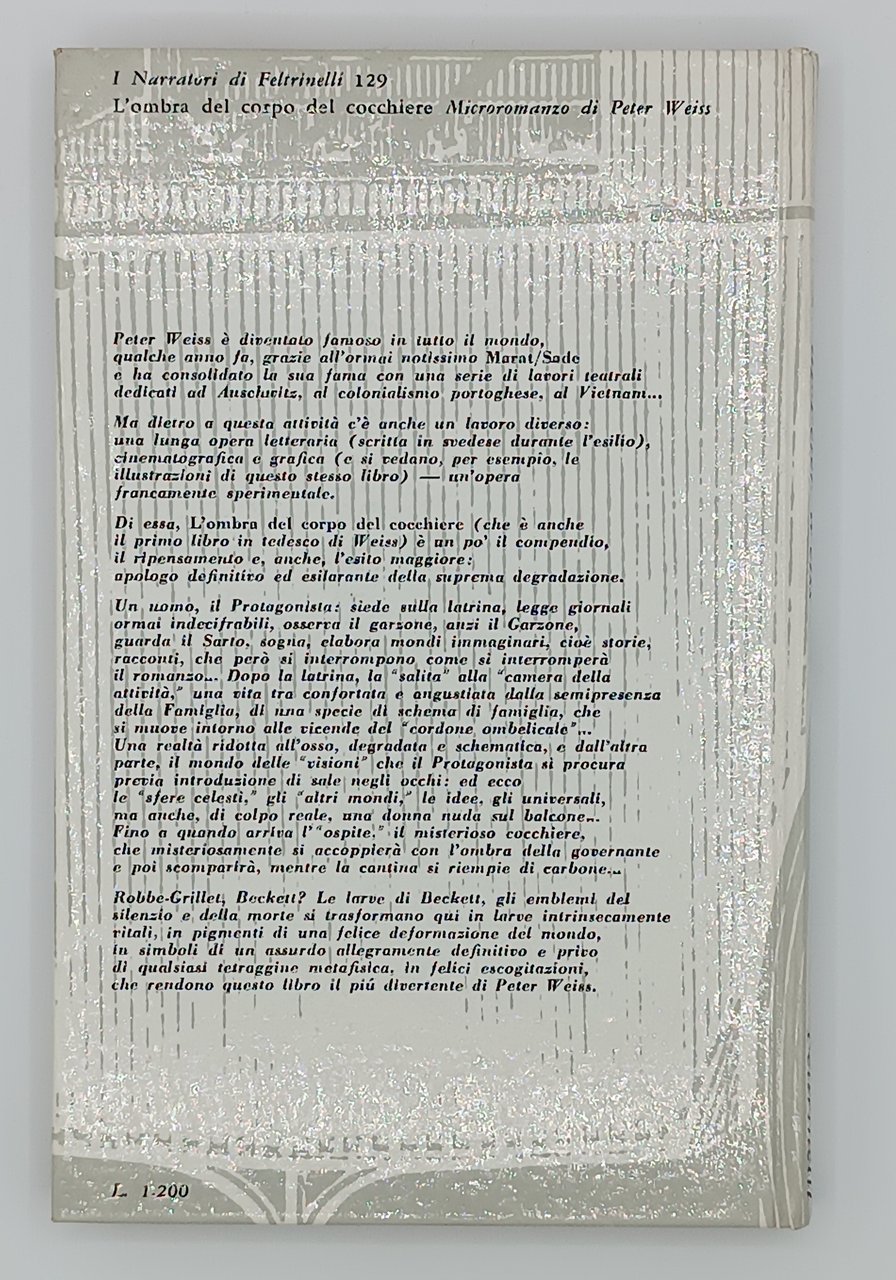 I Narratori di Feltrinelli 129
L'ombra del corpo del cocchiere Microromanzo di Peter Weiss
Peter Weiss è diventato famoso in tutto il mondo,
qualche anno fa, grazie all'ormai notissimo Marat/Sade
e ha consolidato la sua fama con una serie di lavori teatrali
dedicati ad Auschwitz, al colonialismo portoghese, al Vietnam...
Ma dietro a questa attività c'è anche un lavoro diverso:
una lunga opera letteraria (scritta in svedese durante l'esilio),
cinematografica e grafica (e si vedano, per esempio, le
illustrazioni di questo stesso libro) — un'opera
francamente sperimentale.
Di essa, L'ombra del corpo del cocchiere (che è anche
il primo libro in tedesco di Weiss) è un po' il compendio,
il ripensamento e, anche, l'esito maggiore:
apologo definitivo ed esilarante della suprema degradazione.
Un uomo, il Protagonista: siede sulla latrina, legge giornali
ormai indecifrabili, osserva il garzone, anzi il Garzone,
guarda il Sarto, sogna, elabora mondi immaginari, cioè storie,
racconti, che però si interrompono come si interromperà
il romanzo... Dopo la latrina, la “salita” alla “camera della
attività,” una vita tra confortata e angustiata dalla semipresenza
della Famiglia, di una specie di schema di famiglia, che
si muove intorno alle vicende del “cordone ombelicale”...
Una realtà ridotta all'osso, degradata e schematica, e dall'altra
parte, il mondo delle “visioni” che il Protagonista si procura
previa introduzione di sale negli occhi: ed ecco
le “sfere celesti,” gli “altri mondi,” le idee, gli universali,
ma anche, di colpo reale, una donna nuda sul balcone...
Fino a quando arriva l'“ospite,” il misterioso cocchiere,
che misteriosamente si accoppierà con l'ombra della governante
e poi scomparirà, mentre la cantina si riempie di carbone...
Robbe-Grillet, Beckett? Le larve di Beckett, gli emblemi del
silenzio e della morte si trasformano qui in larve intrinsecamente
vitali, in pigmenti di una felice deformazione del mondo,
in simboli di un assurdo allegramente definitivo e privo
di qualsiasi tetraggine metafisica, in felici escogitazioni,
che rendono questo libro il piú divertente di Peter Weiss.
L. 1.200